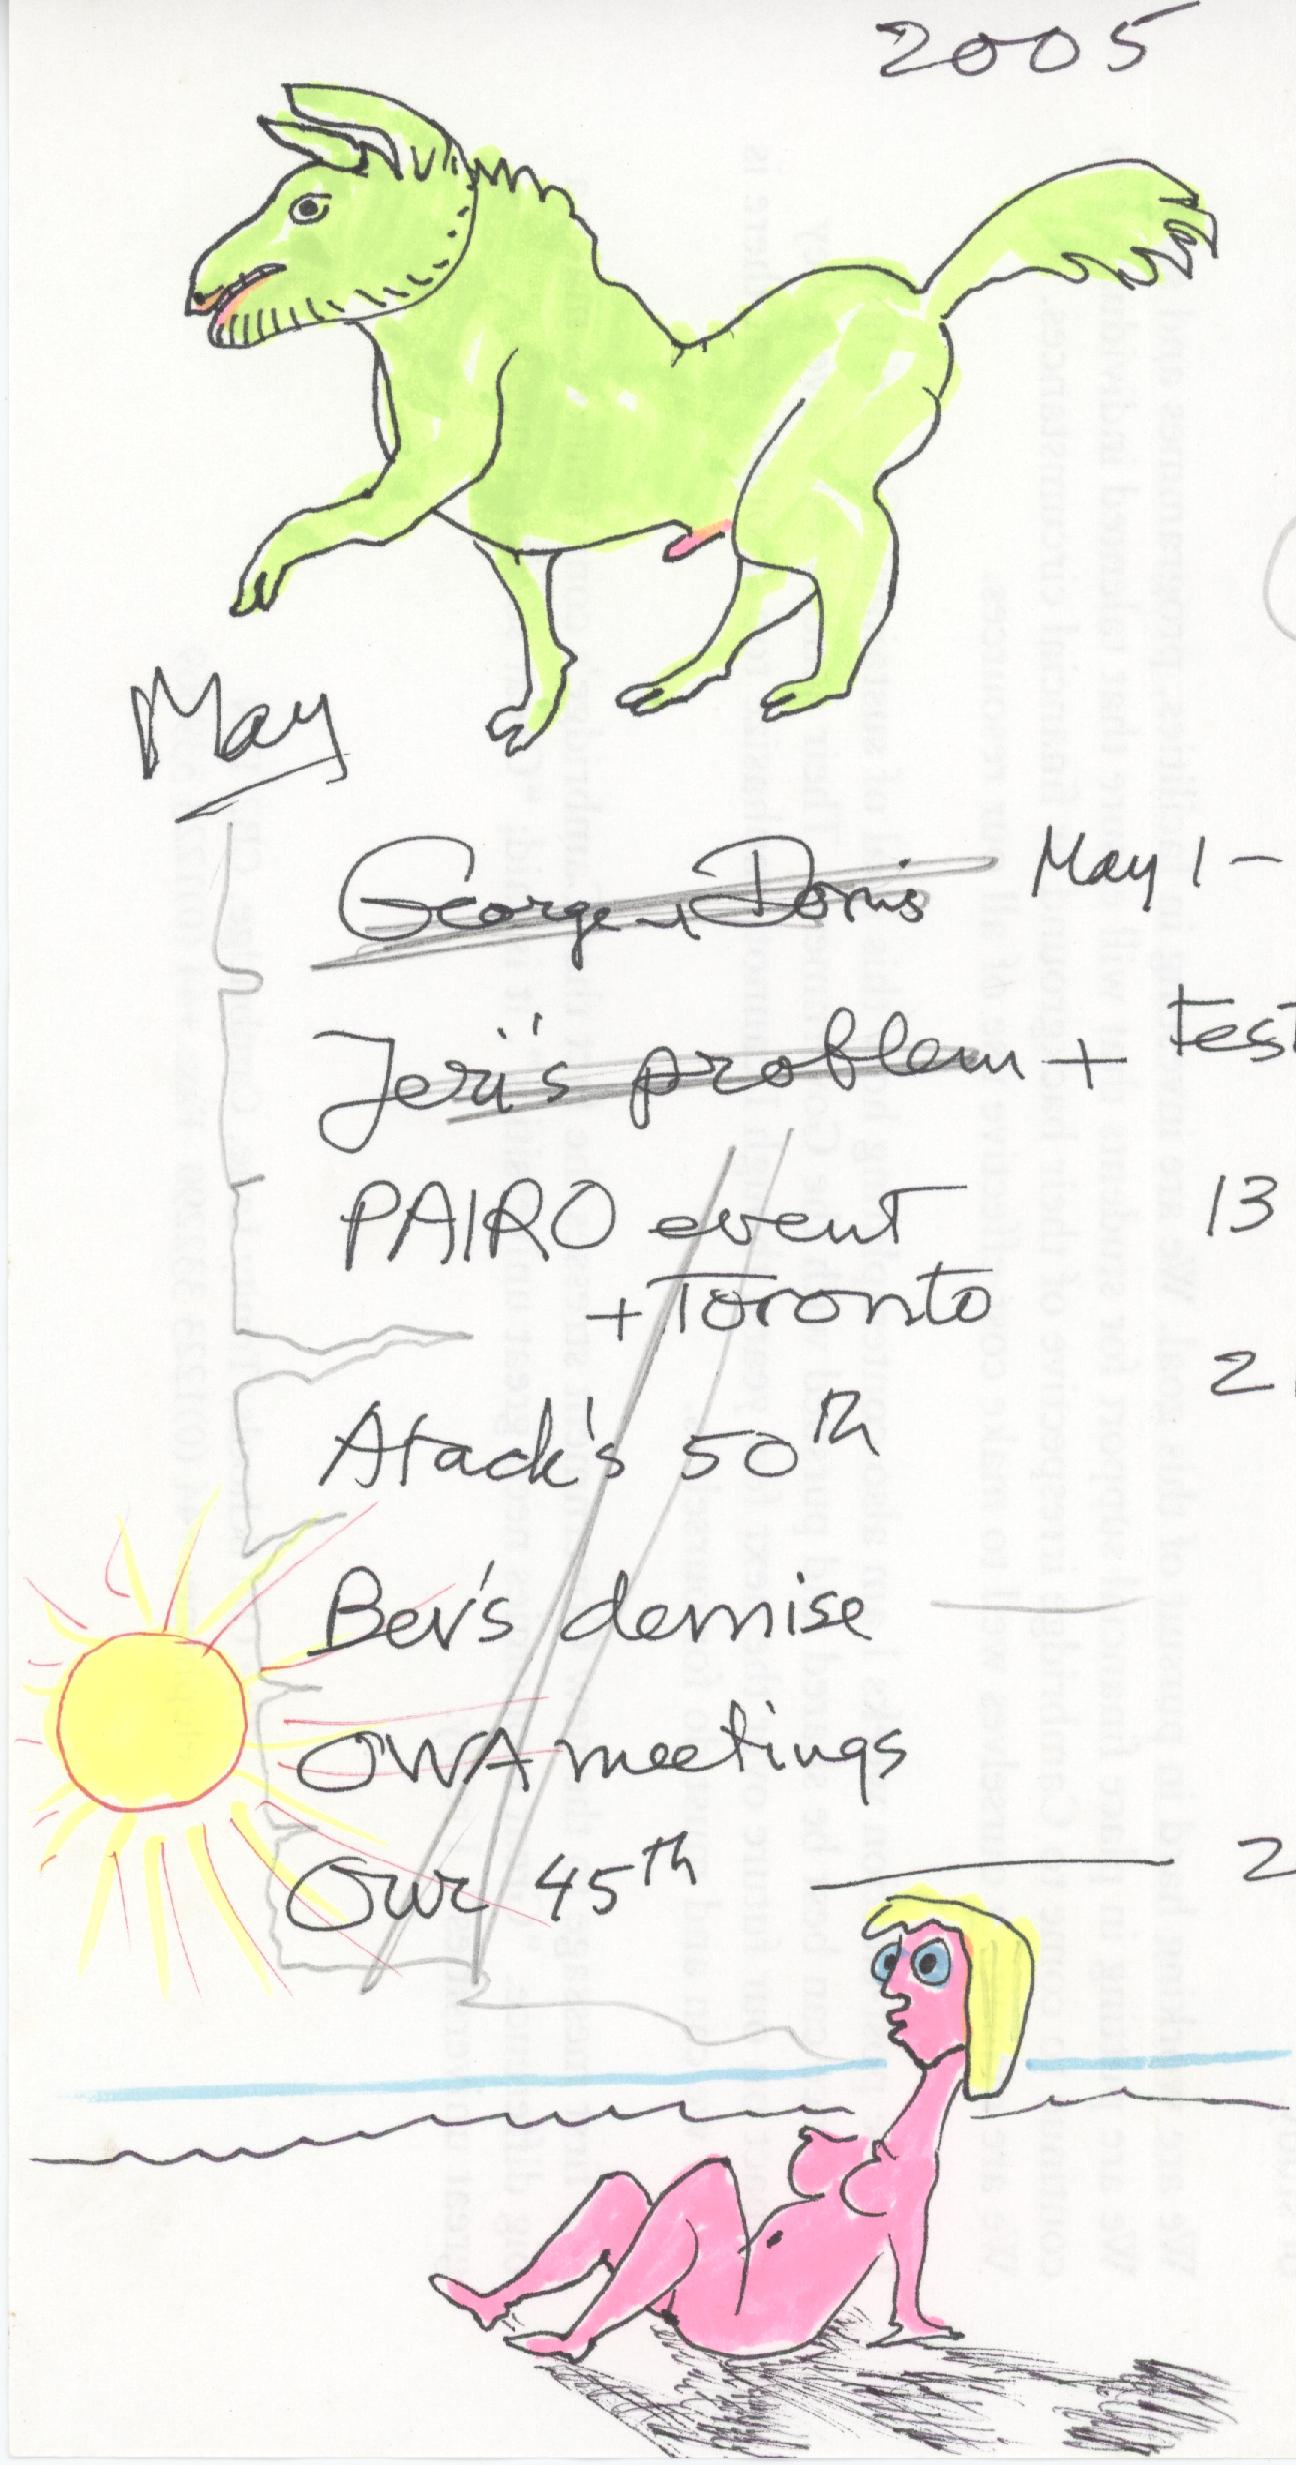 2005
May
George + Doris May 1 -
Jeri's problem + Test
PAIRO event 13
+ Toronto
2
Atack's 50th
Bev's demise
OWA meetings
Our 45th 2